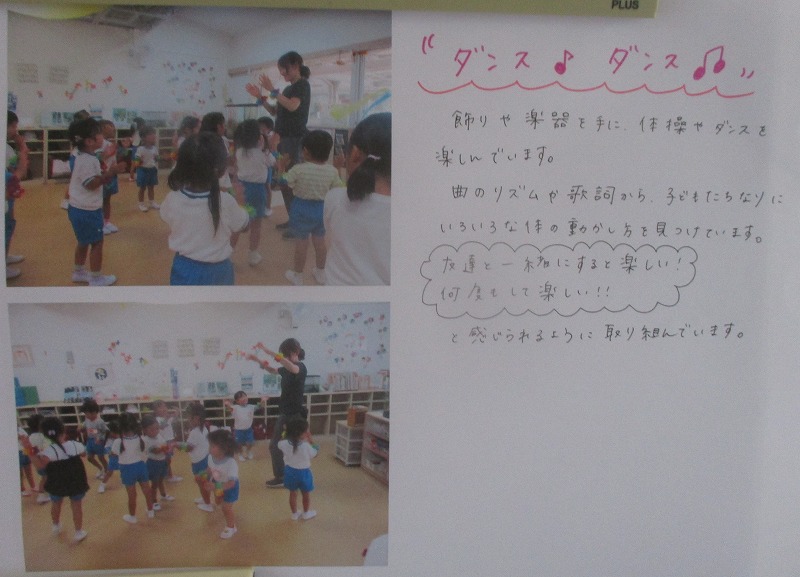 PLUS
"ダンス♪ ダンス♫"
飾りや楽器を手に、体操やダンスを
楽しんでいます。
曲のリズムや歌詞から、子どもたちなりに
いろいろな体の動かし方を見つけています。
友達と一緒にすると楽しい!
何度もして楽しい!!
と感じられるように取り組んでいます。